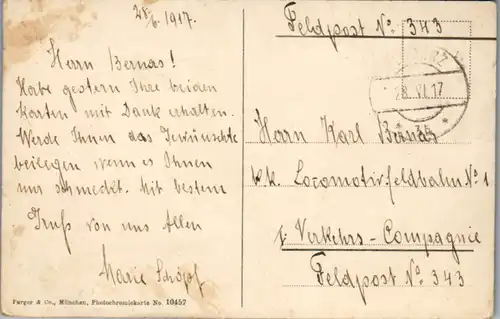 28/6. 1917.
Herrn Bernas!
Habe gestern Ihre beiden
Karten mit Dank erhalten.
Werde Ihnen das Gewünschte
beilegen wenn es Ihnen
nur schmeckt. Mit bestem
Gruß von uns Allen
Marie Schöpf
Purger & Co., München, Photochromiekarte No. 10457
Feldpost No. 343
28. VI. 17
Herrn Karl Bernas
k.k. Locomotivfeldbahn No 1
Verkehrs-Compagnie
Feldpost No. 343